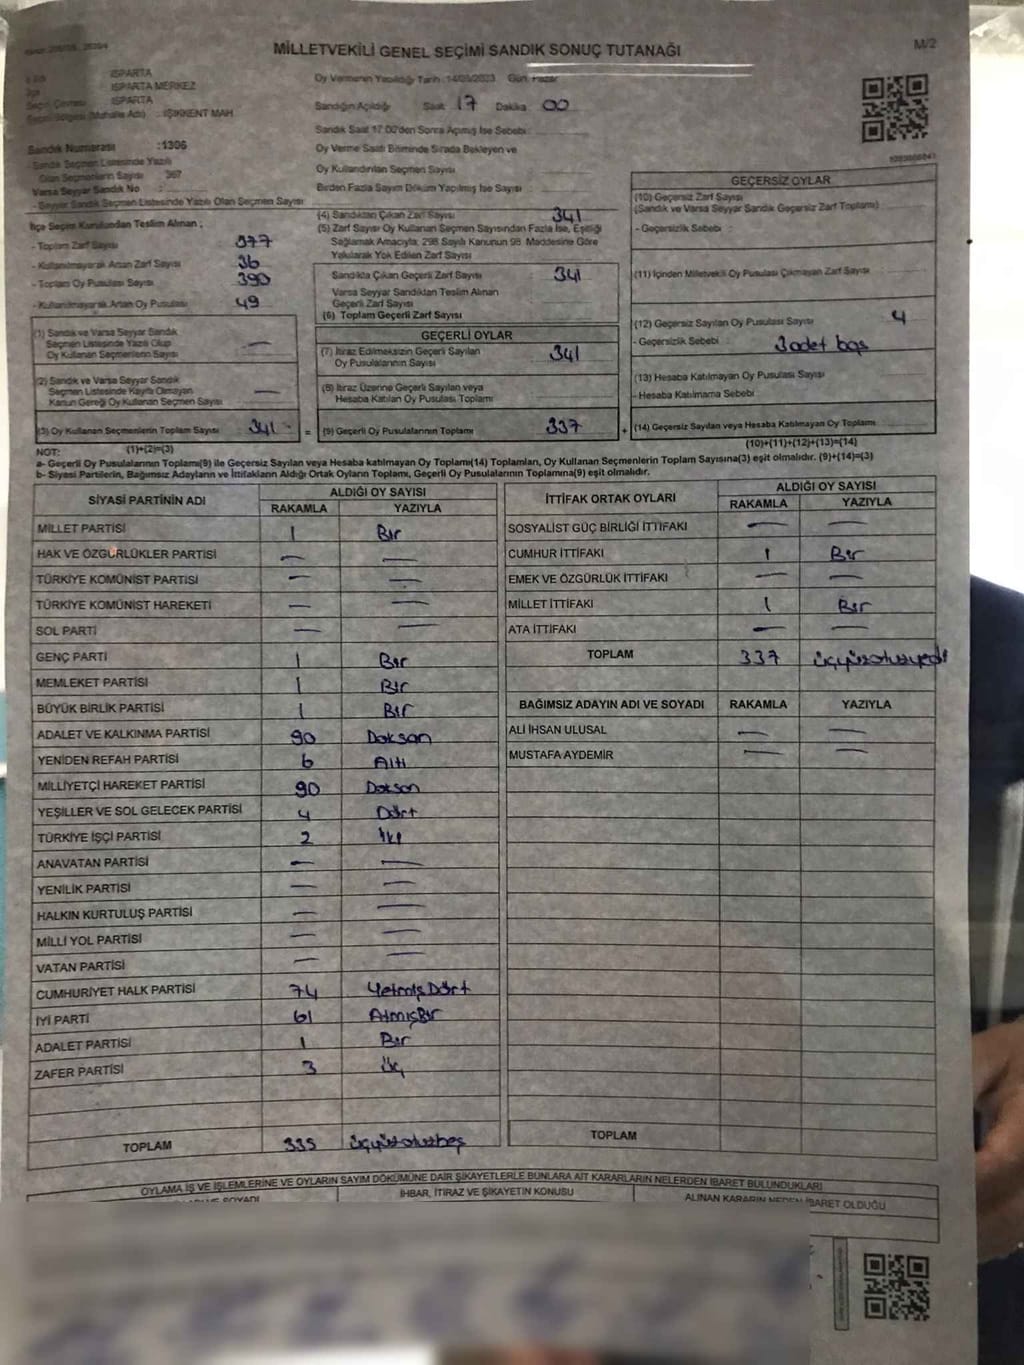 MİLLETVEKİLİ GENEL SEÇİMİ SANDIK SONUÇ TUTANAĞI
M/2
ISPARTA
ISPARTA MERKEZ
ISPARTA
(Mahalle Adı) : IŞIKKENT MAH
Sandık Numarası :1306
Sandık Seçmen Listesinde Yazılı
Olan Seçmenlerin Sayısı 367
Varsa Seyyar Sandık No :
- Seyyar Sandık Seçmen Listesinde Yazılı Olan Seçmen Sayısı
Oy Vermenin Yapıldığı Tarih :14/05/2023 Gün: Pazar
Sandığın Açıldığı Saat 17 Dakika 00
Sandık Saat 17.00'den Sonra Açımış İse Sebebi :
Oy Verme Saati Bitiminde Sırada Bekleyen ve
Oy Kullandırılan Seçmen Sayısı :
Birden Fazla Sayım Döküm Yapılmış İse Sayısı :
İlçe Seçim Kurulundan Teslim Alınan ;
- Toplam Zarf Sayısı 377
- Kullanılmayarak Artan Zarf Sayısı 36
- Toplam Oy Pusulası Sayısı 390
- Kullanılmayarak Artan Oy Pusulası 49
(1) Sandık ve Varsa Seyyar Sandık
Seçmen Listesinde Yazılı Olup
Oy Kullanan Seçmenlerin Sayısı —
(2) Sandık ve Varsa Seyyar Sandık
Seçmen Listesinde Kayıtlı Olmayan
Kanun Gereği Oy Kullanan Seçmen Sayısı —
(3) Oy Kullanan Seçmenlerin Toplam Sayısı 341 =
(1)+(2)=(3)
(4) Sandıktan Çıkan Zarf Sayısı 341
(5) Zarf Sayısı Oy Kullanan Seçmen Sayısından Fazla İse, Eşitliği
Sağlamak Amacıyla, 298 Sayılı Kanunun 98. Maddesine Göre
Yakılarak Yok Edilen Zarf Sayısı
Sandıkta Çıkan Geçerli Zarf Sayısı : 341
Varsa Seyyar Sandıktan Teslim Alınan
Geçerli Zarf Sayısı
(6) Toplam Geçerli Zarf Sayısı
GEÇERLİ OYLAR
(7) İtiraz Edilmeksizin Geçerli Sayılan
Oy Pusulalarının Sayısı 341
(8) İtiraz Üzerine Geçerli Sayılan veya
Hesaba Katılan Oy Pusulası Toplamı
(9) Geçerli Oy Pusulalarının Toplamı 337 +
GEÇERSİZ OYLAR
(10) Geçersiz Zarf Sayısı
(Sandık ve Varsa Seyyar Sandık Geçersiz Zarf Toplamı)
- Geçersizlik Sebebi :
(11) İçinden Milletvekili Oy Pusulası Çıkmayan Zarf Sayısı
(12) Geçersiz Sayılan Oy Pusulası Sayısı 4
- Geçersizlik Sebebi : 3 adet boş
(13) Hesaba Katılmayan Oy Pusulası Sayısı
- Hesaba Katılmama Sebebi
(14) Geçersiz Sayılan veya Hesaba Katılmayan Oy Toplamı
(10)+(11)+(12)+(13)=(14)
NOT:
a- Geçerli Oy Pusulalarının Toplamı(9) ile Geçersiz Sayılan veya Hesaba katılmayan Oy Toplamı(14) Toplamları, Oy Kullanan Seçmenlerin Toplam Sayısına(3) eşit olmalıdır. (9)+(14)=(3)
b- Siyasi Partilerin, Bağımsız Adayların ve İttifakların Aldığı Ortak Oyların Toplamı, Geçerli Oy Pusulalarının Toplamına(9) eşit olmalıdır.
SİYASİ PARTİNİN ADI
ALDIĞI OY SAYISI
RAKAMLA YAZIYLA
MİLLET PARTİSİ 1 Bir
HAK VE ÖZGÜRLÜKLER PARTİSİ — —
TÜRKİYE KOMÜNİST PARTİSİ — —
TÜRKİYE KOMÜNİST HAREKETİ — —
SOL PARTİ — —
GENÇ PARTİ 1 Bir
MEMLEKET PARTİSİ 1 Bir
BÜYÜK BİRLİK PARTİSİ 1 Bir
ADALET VE KALKINMA PARTİSİ 90 Doksan
YENİDEN REFAH PARTİSİ 6 Altı
MİLLİYETÇİ HAREKET PARTİSİ 90 Doksan
YEŞİLLER VE SOL GELECEK PARTİSİ 4 Dört
TÜRKİYE İŞÇİ PARTİSİ 2 İki
ANAVATAN PARTİSİ — —
YENİLİK PARTİSİ — —
HALKIN KURTULUŞ PARTİSİ — —
MİLLİ YOL PARTİSİ — —
VATAN PARTİSİ — —
CUMHURİYET HALK PARTİSİ 74 Yetmiş Dört
İYİ PARTİ 61 Atmış Bir
ADALET PARTİSİ 1 Bir
ZAFER PARTİSİ 3 Üç
TOPLAM 335 üçyüzotuzbeş
İTTİFAK ORTAK OYLARI
ALDIĞI OY SAYISI
RAKAMLA YAZIYLA
SOSYALİST GÜÇ BİRLİĞİ İTTİFAKI — —
CUMHUR İTTİFAKI 1 Bir
EMEK VE ÖZGÜRLÜK İTTİFAKI — —
MİLLET İTTİFAKI 1 Bir
ATA İTTİFAKI — —
TOPLAM 337 üçyüzotuzyedi
BAĞIMSIZ ADAYIN ADI VE SOYADI RAKAMLA YAZIYLA
ALİ İHSAN ULUSAL — —
MUSTAFA AYDEMİR — —
TOPLAM
OYLAMA İŞ VE İŞLEMLERİNE VE OYLARIN SAYIM DÖKÜMÜNE DAİR ŞİKAYETLERLE BUNLARA AİT KARARLARIN NELERDEN İBARET BULUNDUKLARI
SOYADI
İHBAR, İTİRAZ VE ŞİKAYETİN KONUSU
ALINAN KARARIN NEDEN İBARET OLDUĞU